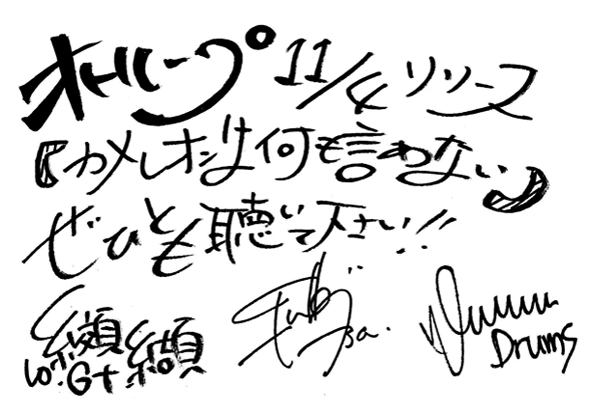 オトループ 11/4 リリース
『カメレオンは何も言わない』
ぜひとも聴いて下さい!!
纐纈
Vo.Gt
Ba.
Drums